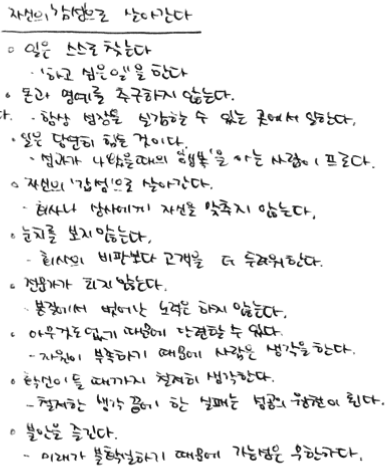 자신의 '감성'으로 살아간다
○ 일은 스스로 찾는다
- '하고 싶은 일'을 한다
○ 돈과 명예를 추구하지 않는다.
다. - 항상 성장을 실감할 수 있는 곳에서 일한다.
○ 일은 당연히 힘든 것이다.
- 성과가 나왔을때의 '행복'을 아는 사람이 프로다.
○ 자신의 '감성'으로 살아간다.
- 회사나 상사에게 자신을 맞추지 않는다.
○ 눈치를 보지 않는다.
- 회사의 비판보다 고객을 더 두려워한다.
○ 전문가가 되지 않는다.
- 본질에서 벗어난 노력은 하지 않는다.
○ 아무것도 없기 때문에 단련할 수 있다.
- 자원이 부족하기 때문에 사람은 생각을 한다.
○ 확신이 들 때까지 철저히 생각한다.
- 철저한 생각 끝에 한 실패는 성공의 원천이 된다.
○ 불안을 즐긴다.
- 미래가 불확실하기 때문에 가능성은 무한하다.